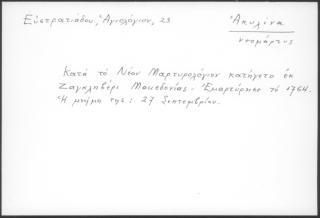 Εὐστρατιάδου, Ἁγιολόγιον, 23
Ἀκυλίνα
νεομάρτυς
Κατὰ τὸ Νέον Μαρτυρολόγιον κατήγετο ἐκ
Ζαγκλιβέρι Μακεδονίας. Ἐμαρτύρησε τὸ 1764.
Ἡ μνήμη της: 27 Σεπτεμβρίου.